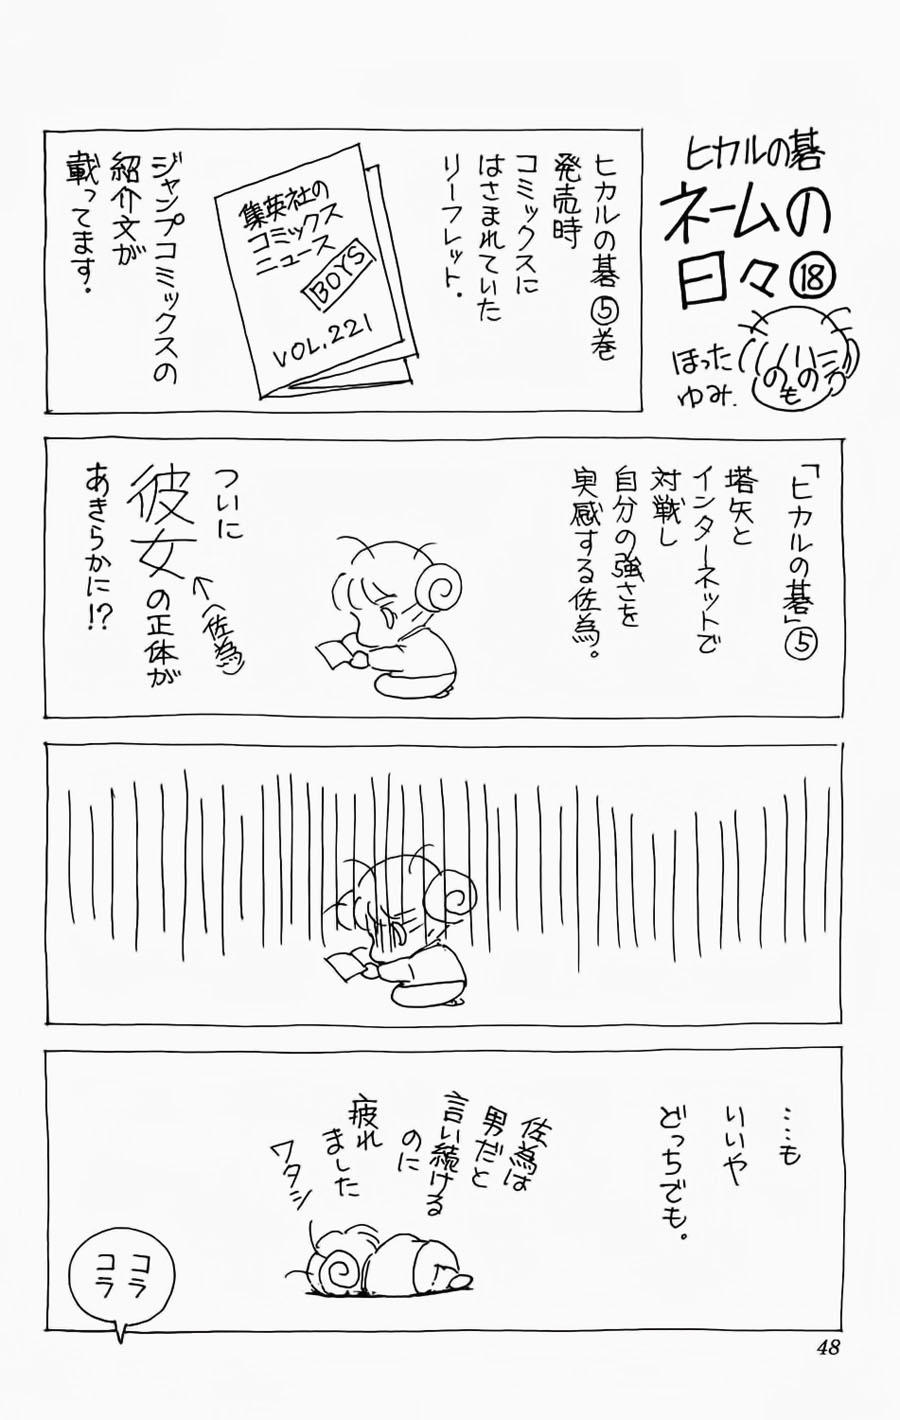 ヒカルの碁
ネームの
日々⑱
ほった
ゆみ.
ヒカルの碁⑤巻
発売時
コミックスに
はさまれていた
リーフレット.
集英社の
コミックス
ニュース
BOYS
VOL.221
ジャンプコミックスの
紹介文が
載ってます.
「ヒカルの碁」⑤
塔矢と
インターネットで
対戦し
自分の強さを
実感する佐為。
ついに
彼女の正体が
(佐為)
あきらかに!?
……も
いいや
どっちでも。
佐為は
男だと
言い続ける
のに
疲れ
ました
ワタシ
コラ
コラ
48